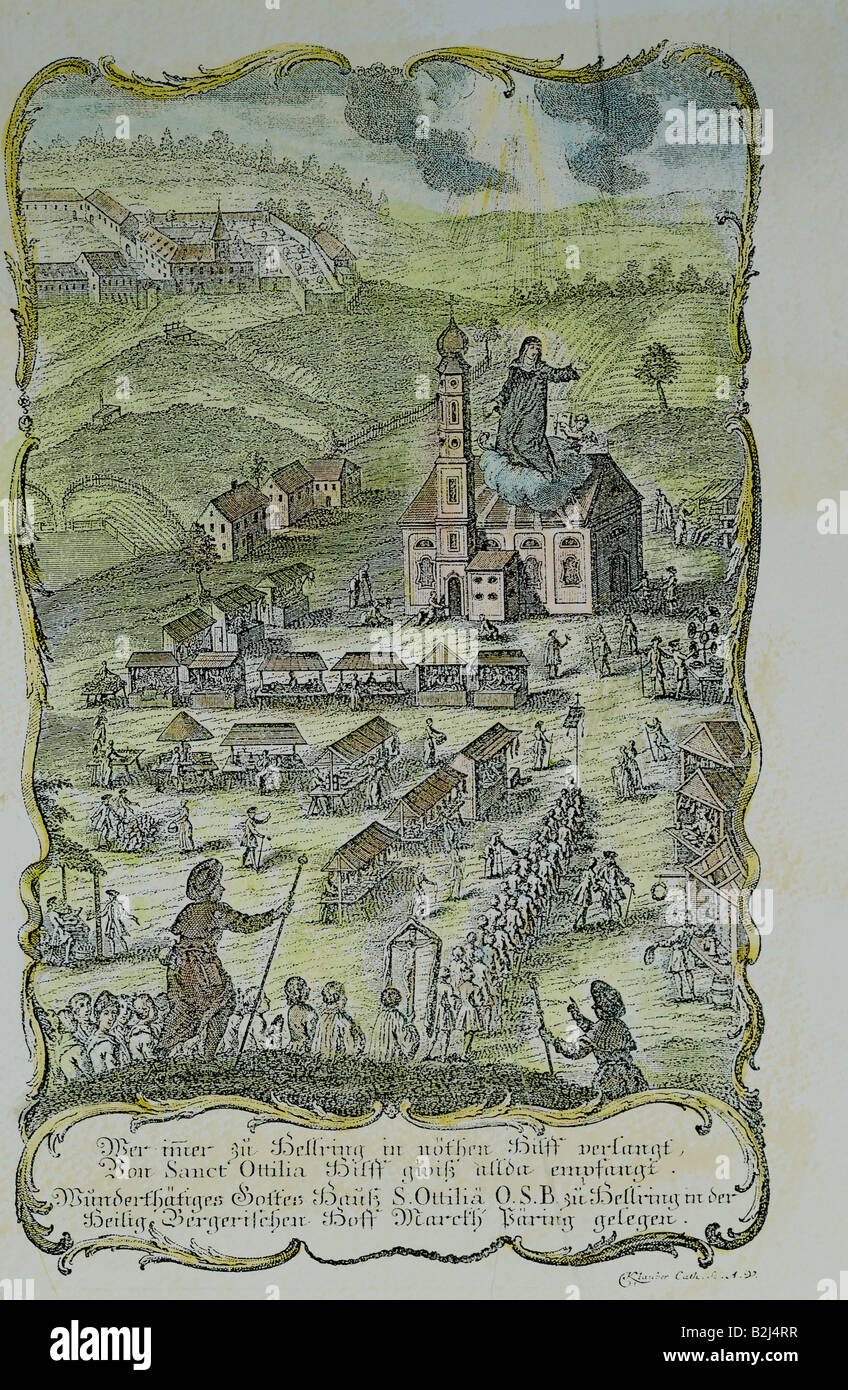 Wer im̅er zu Hellring in nöthen Hilff verlangt,
Von Sanct Ottilia Hilff gwiß allda empfangt.
Wunderthätiges Gottes Hauß S. Ottiliä O.S.B. zu Hellring in der
Heilig Bergerischen Hoff Marckh Päring gelegen.
Klauber Cath. Sc. A. V.
alamy
Image ID: B2J4RR
www.alamy.com